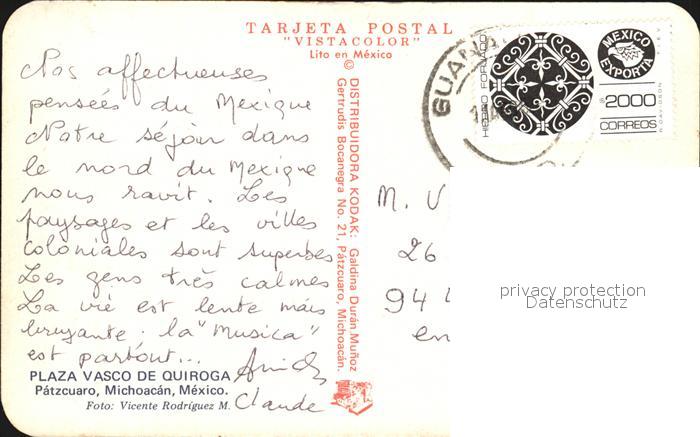 TARJETA POSTAL
"VISTACOLOR"
Lito en México
Nos affectueuses
pensées du Mexique
Notre séjour dans
le nord du Mexique
nous ravit. Les
paysages et les villes
coloniales sont superbes
Les gens très calmes
La vie est lente mais
bruyante. la "Musica"
est partout...
Claude
PLAZA VASCO DE QUIROGA
Pátzcuaro, Michoacán, México.
Foto: Vicente Rodríguez M.
© DISTRIBUIDORA KODAK: Galdina Durán Muñoz
Gertrudis Bocanegra No. 21, Pátzcuaro, Michoacán.
HIERRO FORJADO
MEXICO
EXPORTA
$ 2000
CORREOS
R. DAVIDSON
M. V
26
94
en
privacy protection
Datenschutz